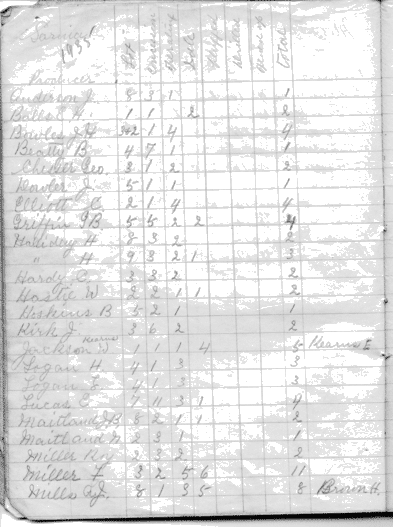 1935
Producer Lot Concession Total
Anderson J. 8 3 1 1
H. 1 1 2 2
Bowles 1 4 4
Beatty B. 4 7 1 1
Geo. 3 1 2 2
J. 5 1 1 1
Elliott C. 2 1 4 4
Griffin J.B. 5 5 2 2 4
Holliday H. 8 3 2 2
" H 9 3 2 1 3
Hardy C. 3 3 2 2
Hastie W. 2 2 1 1 2
Hoskins B 5 2 1 1
Kirk J. 3 6 2 2
Kearns
Jackson W. 1 1 1 4 5 Kearns
Logan H. 4 1 3 3
Logan F. 4 1 3 3
Lucas C. 7 11 3 1 4
Maitland J.B 8 2 1 1 2
Maitland W. 2 3 1 1
Miller Roy 2 3 2 2
Miller F. 3 2 5 6 11
Mills 8 1 3 5 8 Brown H.